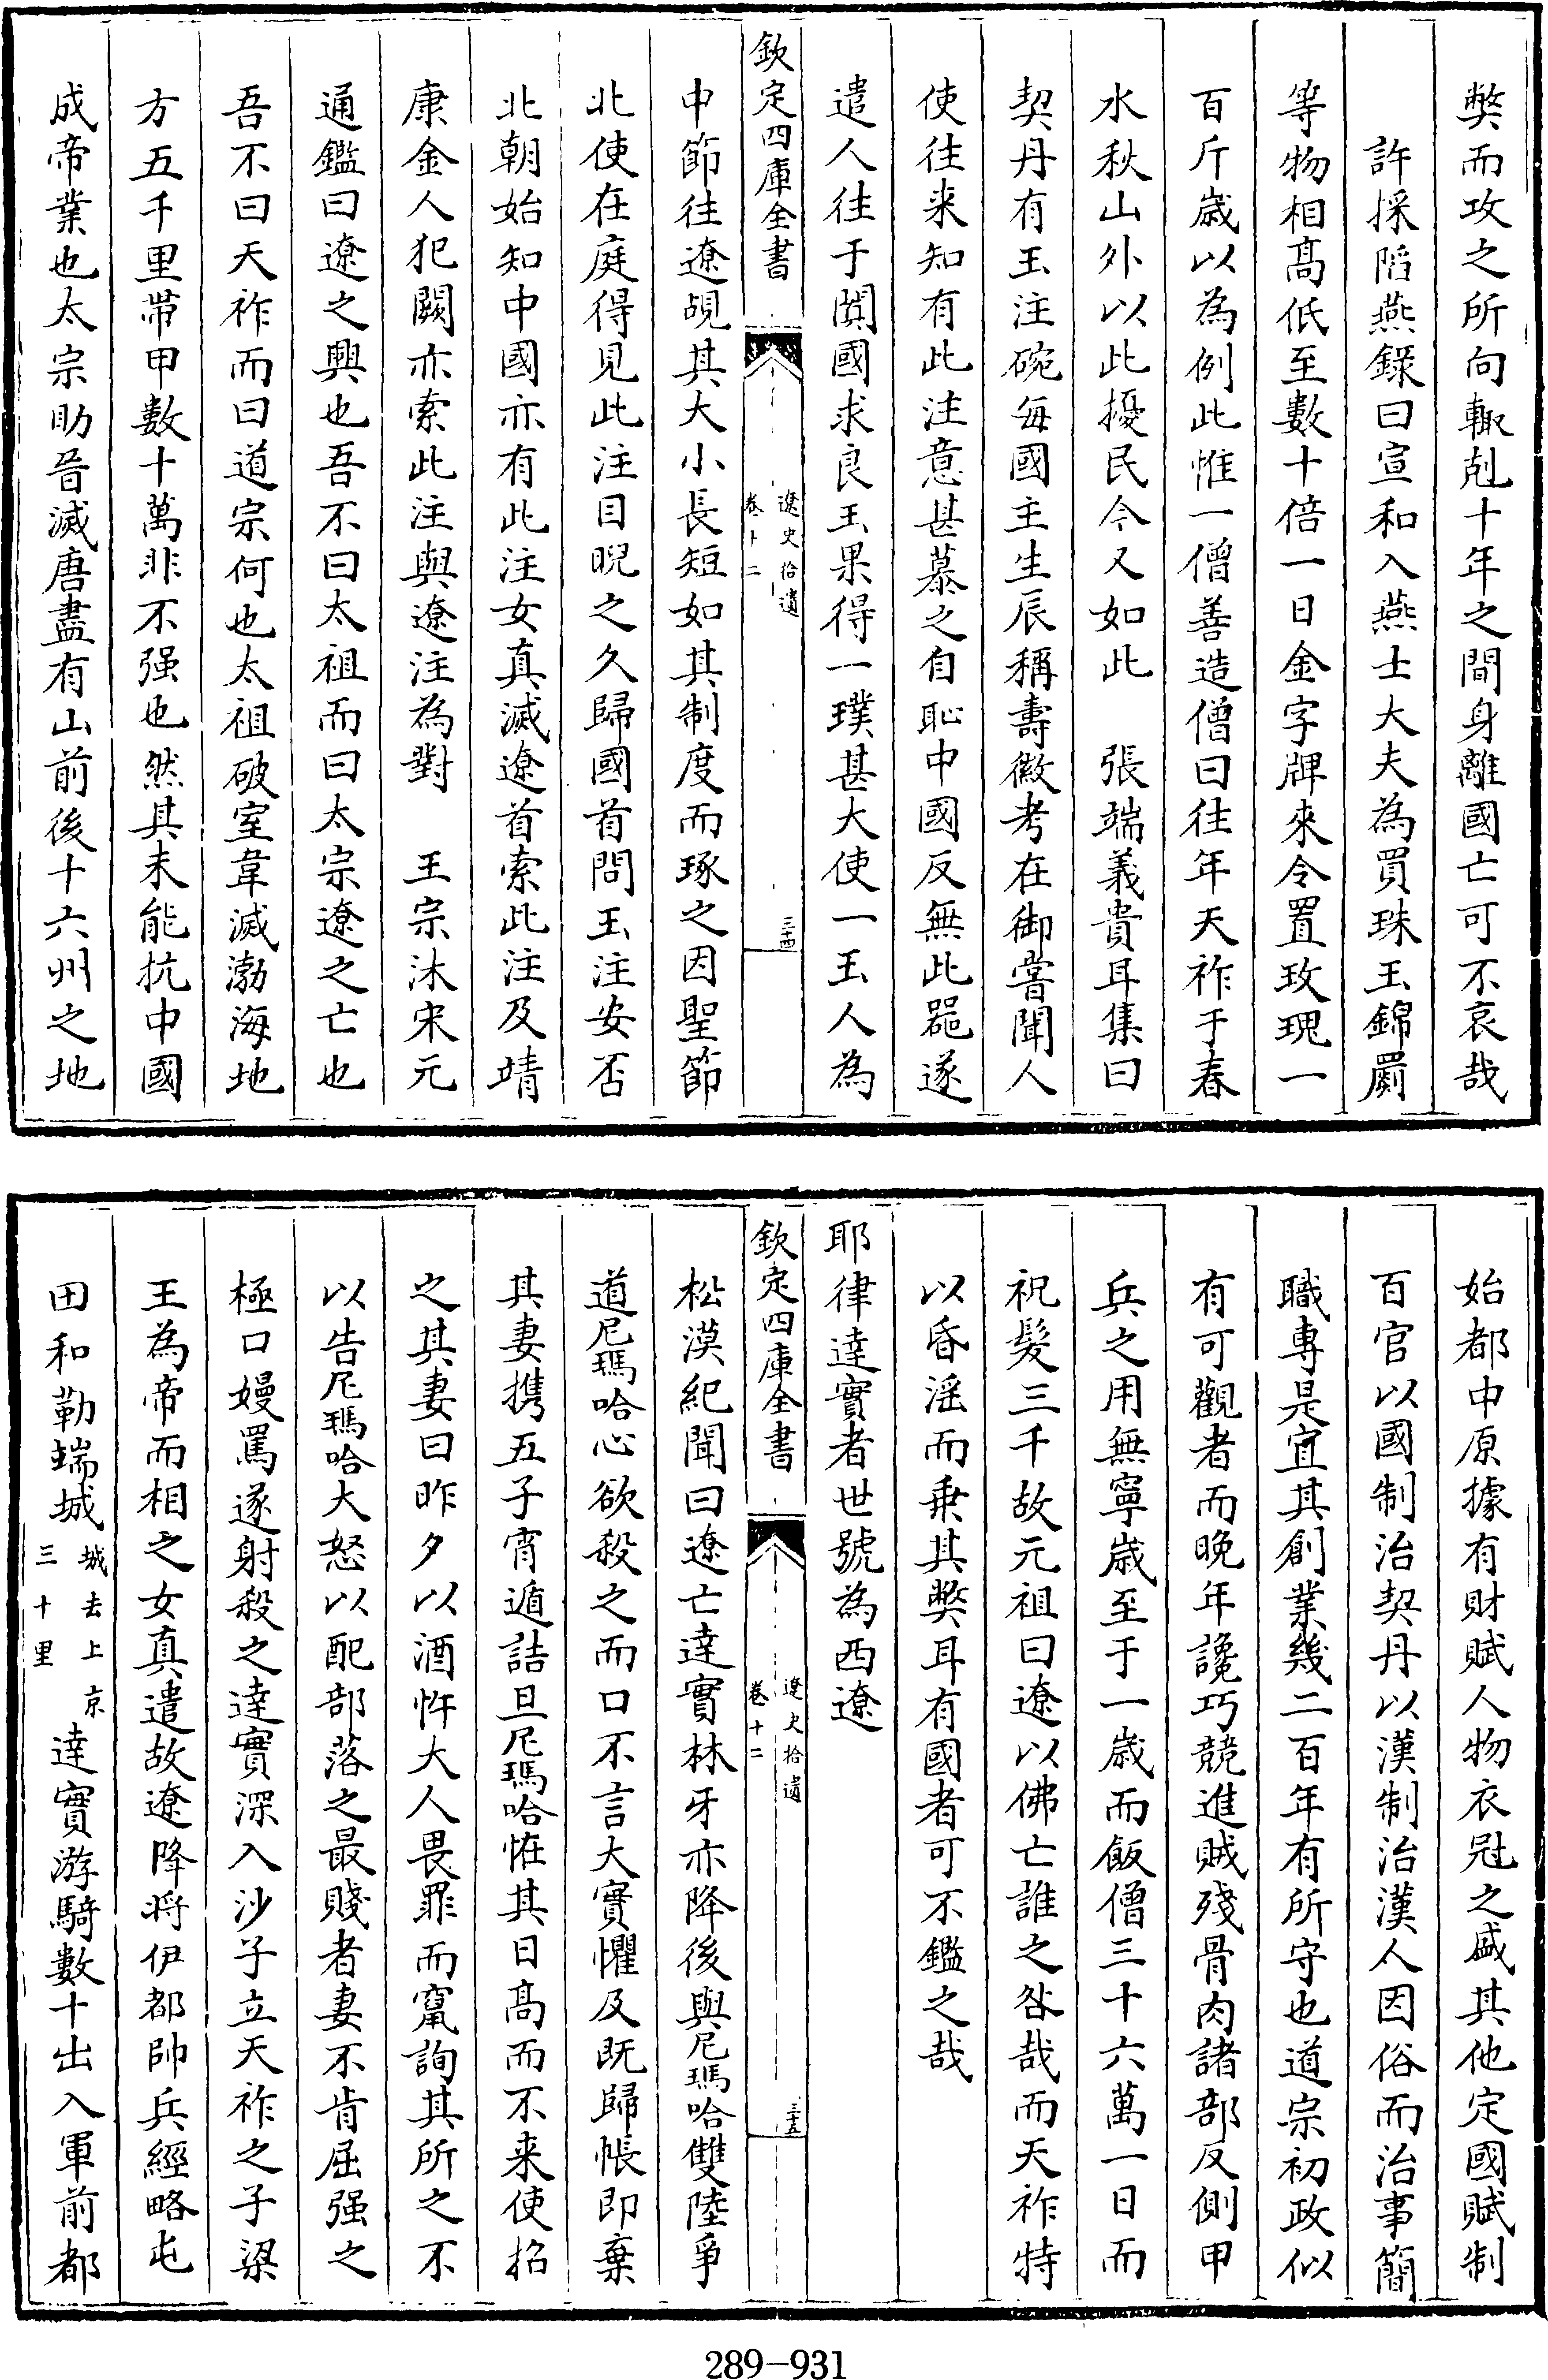 弊而攻之所向輙剋十年之間身離國亡可不哀哉
許採陷燕錄曰宣和入燕士大夫為買珠玉錦罽
等物相髙低至數十倍一日金字牌來令置玫瑰一
百斤歲以為例此惟一僧善造僧曰往年天祚于春
水秋山外以此擾民今又如此　張端義貴耳集曰
契丹有玉注碗每國主生辰稱壽徽考在御嘗聞人
使往来知有此注意甚慕之自恥中國反無此噐遂
遣人往于闐國求良玉果得一璞甚大使一玉人為
欽定四庫全書
遼史拾遺
卷十二
三十四
中節往遼覘其大小長短如其制度而琢之因聖節
北使在庭得見此注目睨之久歸國首問玉注安否
北朝始知中國亦有此注女真滅遼首索此注及靖
康金人犯闕亦索此注與遼注為對　王宗沐宋元
通鑑曰遼之興也吾不曰太祖而曰太宗遼之亡也
吾不曰天祚而曰道宗何也太祖破室韋滅渤海地
方五千里帶甲數十萬非不强也然其未能抗中國
成帝業也太宗助晉滅唐盡有山前後十六州之地
始都中原據有財賦人物衣冠之盛其他定國賦制
百官以國制治契丹以漢制治漢人因俗而治事簡
職專是宜其創業幾二百年有所守也道宗初政似
有可觀者而晚年讒巧競進賊殘骨肉諸部反側甲
兵之用無寧歲至于一歲而飯僧三十六萬一日而
祝髮三千故元祖曰遼以佛亡誰之咎哉而天祚特
以昏淫而乗其弊耳有國者可不鑑之哉
耶律達實者世號為西遼
欽定四庫全書
遼史拾遺
卷十二
三十五
松漠紀聞曰遼亡達實林牙亦降後與尼瑪哈雙陸爭
道尼瑪哈心欲殺之而口不言大實懼及既歸帳即棄
其妻携五子宵遁詰旦尼瑪哈恠其日髙而不来使招
之其妻曰昨夕以酒忤大人畏罪而竄詢其所之不
以告尼瑪哈大怒以配部落之最賤者妻不肯屈强之
極口嫚罵遂射殺之達實深入沙子立天祚之子梁
王為帝而相之女真遣故遼降將伊都帥兵經略屯
田和勒端城城去上京三十里達實游騎數十出入軍前都
289-931